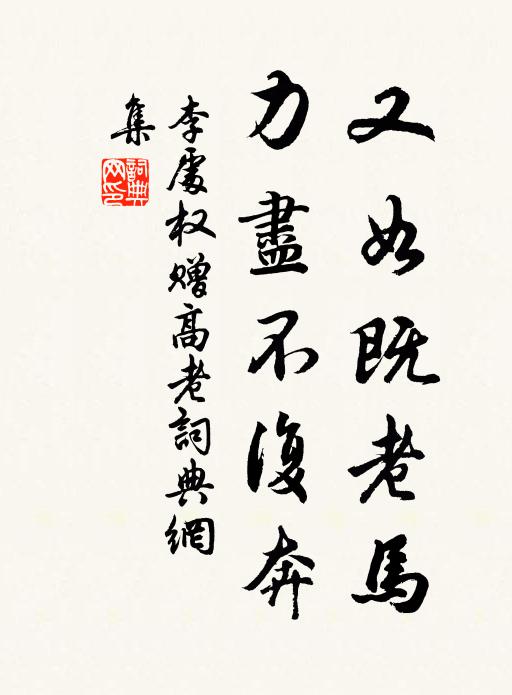 又如既老馬
力盡不復奔
李處权赠高老詞典網
集
詞典网印